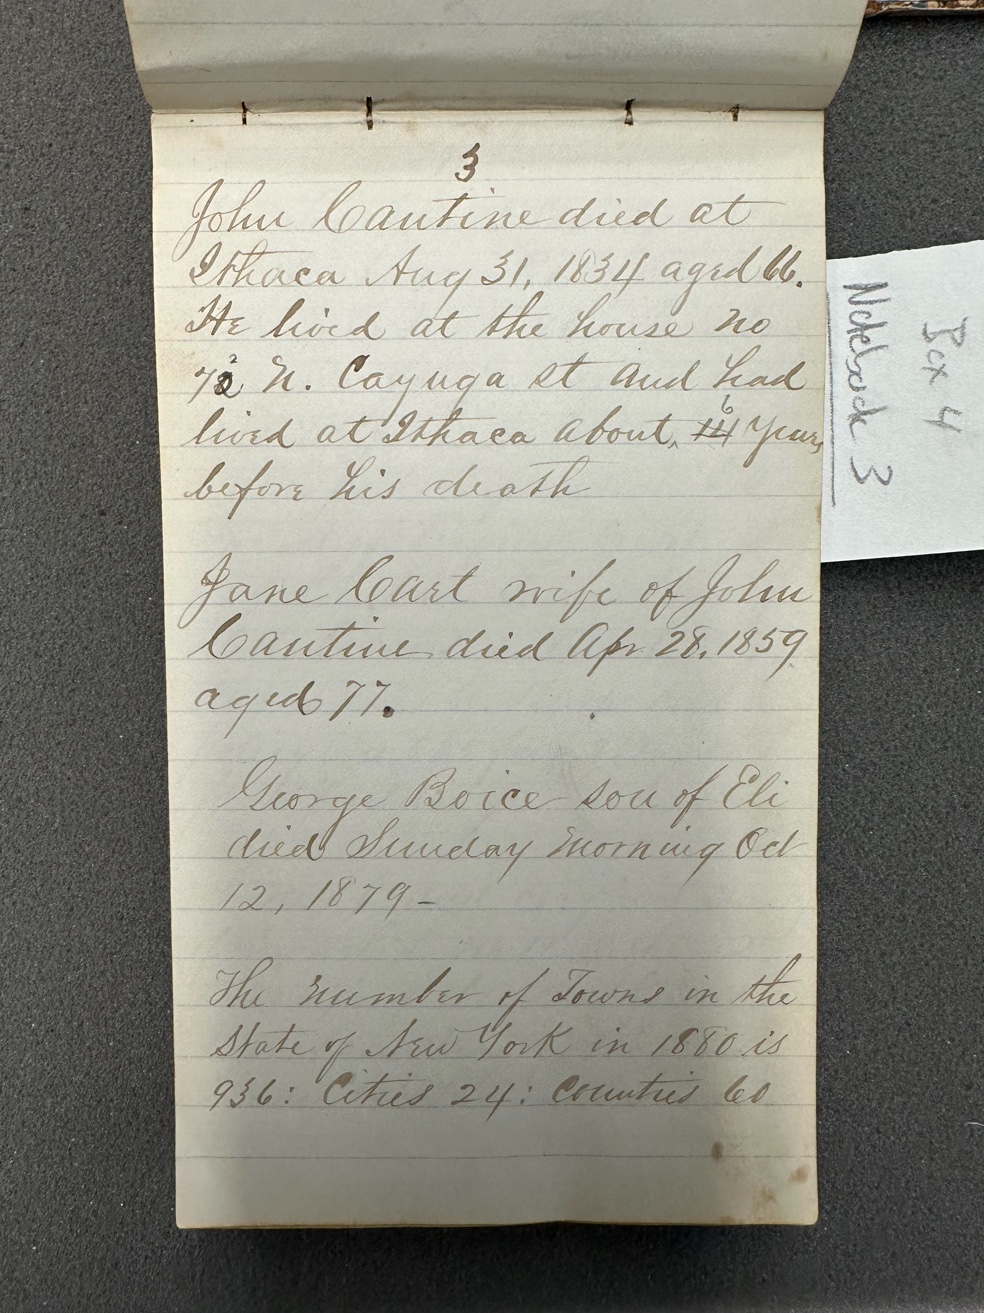 3
John Cantine died at
Ithaca Aug 31, 1834 aged 66.
He lived at the house no
72 N. Cayuga st and had
lived at Ithaca about 6 years
before his death
Jane Cart wife of John
Cantine died Apr 28, 1859
aged 77.
George Boice son of Eli
died Sunday morning Oct
12, 1879 –
The number of Towns in the
State of New York in 1880 is
936: Cities 24: Counties 60
Box 4
Notebook 3